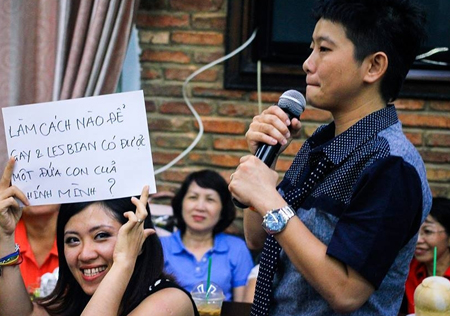 LÀM CÁCH NÀO ĐỂ
GAY & LESBIAN CÓ ĐƯỢC
MỘT ĐỨA CON CỦA
CHÍNH MÌNH ?